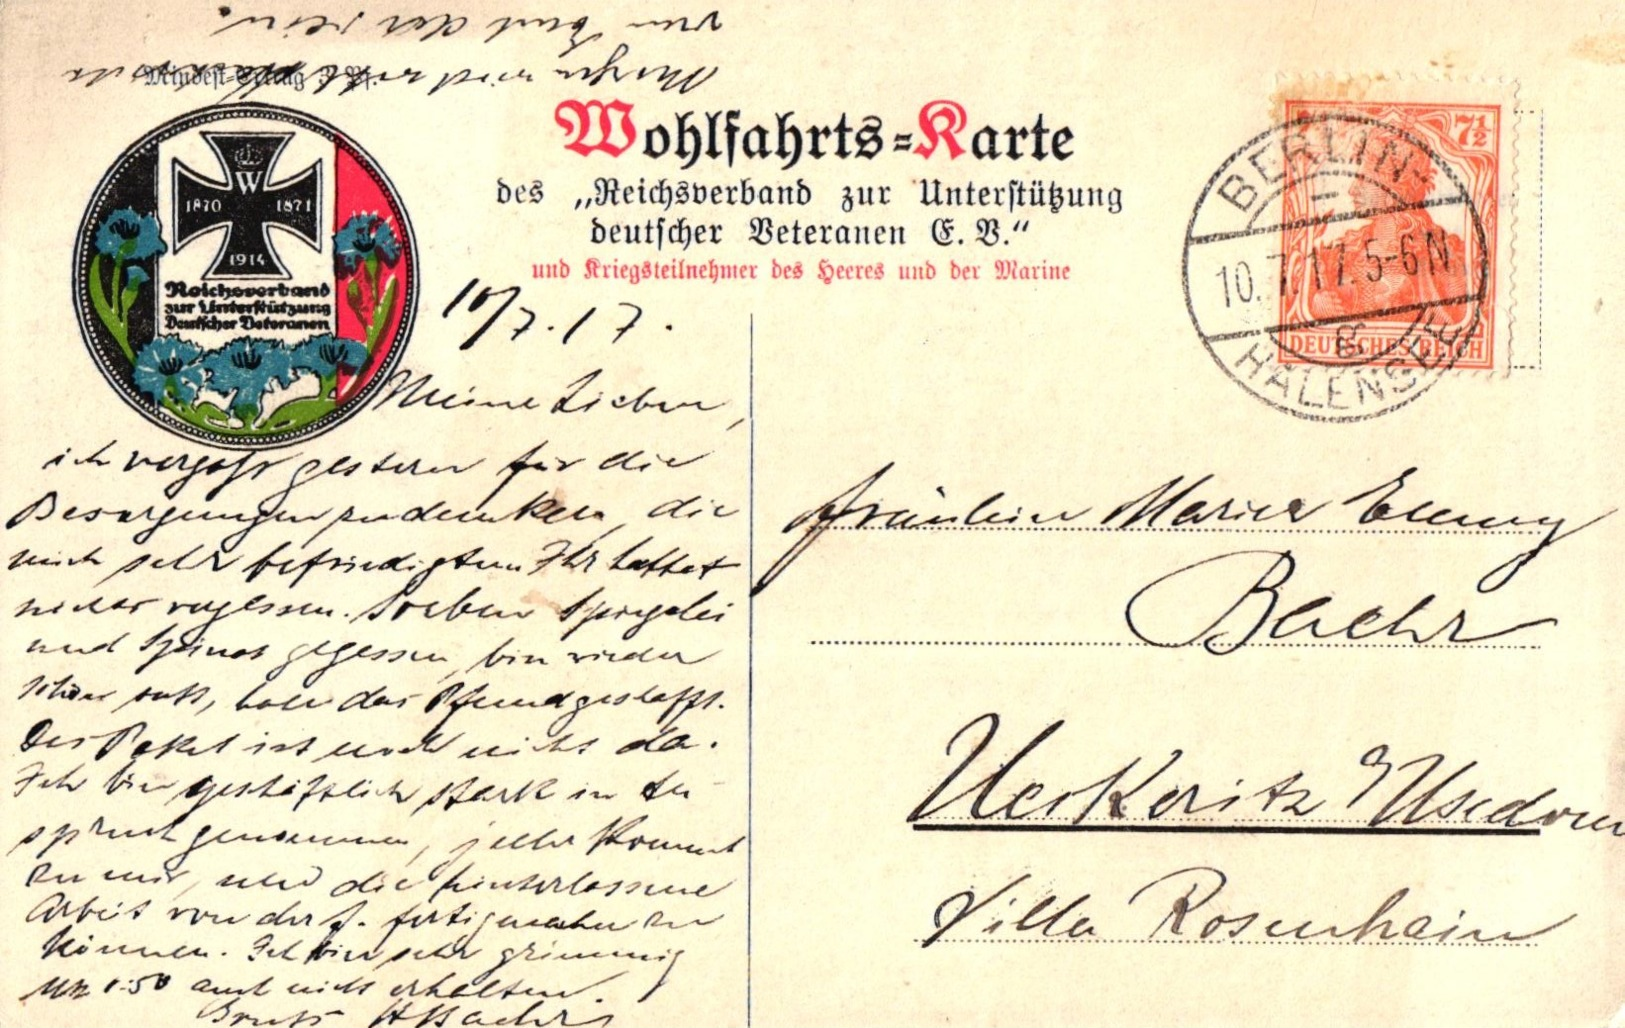 Mindest-Ertrag 3 Pf.
Morgen wird
Wohlfahrts=Karte
des „Reichsverband zur Unterstützung
deutscher Veteranen E. V."
und Kriegsteilnehmer des Heeres und der Marine
W
1870 1871
1914
Reichsverband
zur Unterstützung
Deutscher Veteranen
7½
DEUTSCHES REICH
BERLIN-
10.7.17.5-6N
HALENSEE
10/7.17.
Meine Lieben,
ich vergaß gestern für die
Besorgungen zu danken, die
mich sehr befriedigten Ihr hattet
nichts vergessen. Soeben Spiegelei
und Spinat gegessen, bin wieder
schön satt, habe das Pfund geschafft.
Das Paket ist noch nicht da.
Ich bin geschäftlich stark in An-
spruch genommen, jeder kommt
zu mir, und die hinterlassene
Arbeit von der f. fertig machen zu
können. Ich bin sehr grimmig
1:50 auch nicht erhalten.
Gruß HBaehr
Fräulein Marie Emmy
Baehr
Ueckeritz / Usedom
Villa Rosenhain